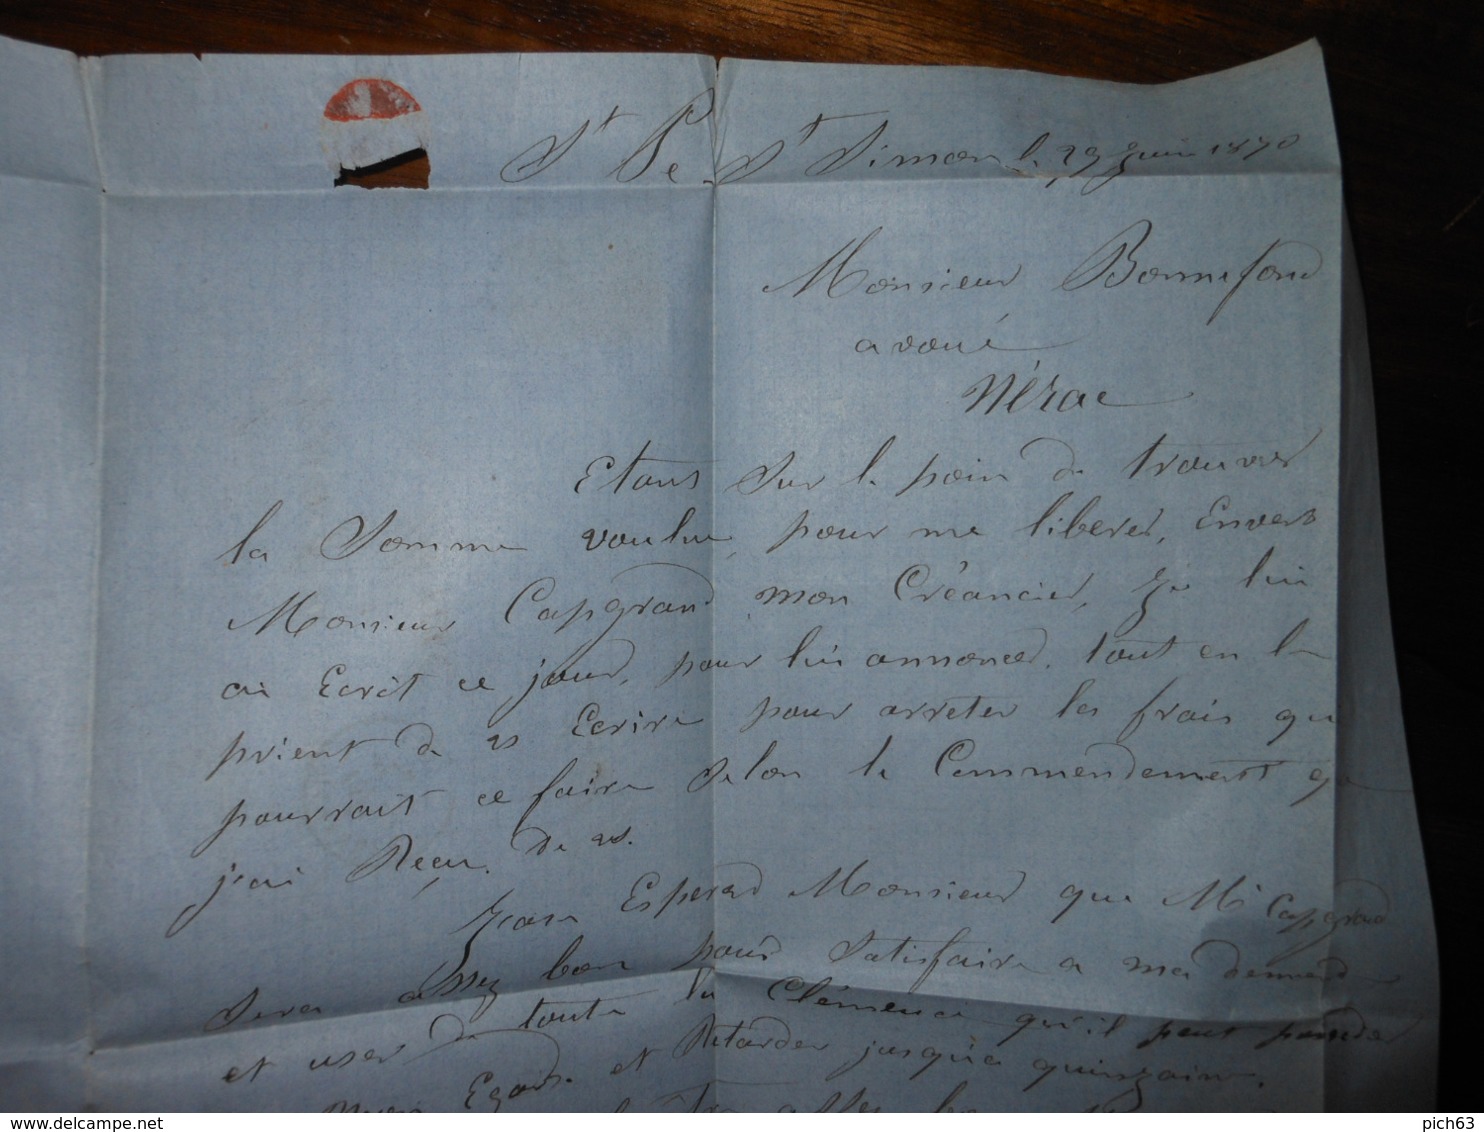 St Pé St Simon le 29 Juin 1870
Monsieur Bonnefond
avoué
Nérac
Etans sur le poin de trouver
la Somme voulue, pour me liberer, Envers
Monsieur Capgrand mon Créancier, Je lui
ai Ecrit ce jour, pour lui annoncer, tout en le
prient de vs Ecrire pour arreter les frais qui
pourrait ce faire selon le Commendement que
j'ai Reçu de vs.
J'ose Esperer Monsieur que Mr Capgrand
sera assez bon pour Satisfaire a ma demande
et user de toute la Clémence qu'il peut posseder
mon Egard et Retarder jusqu'a quinzaine.
delcampe.net
pich63